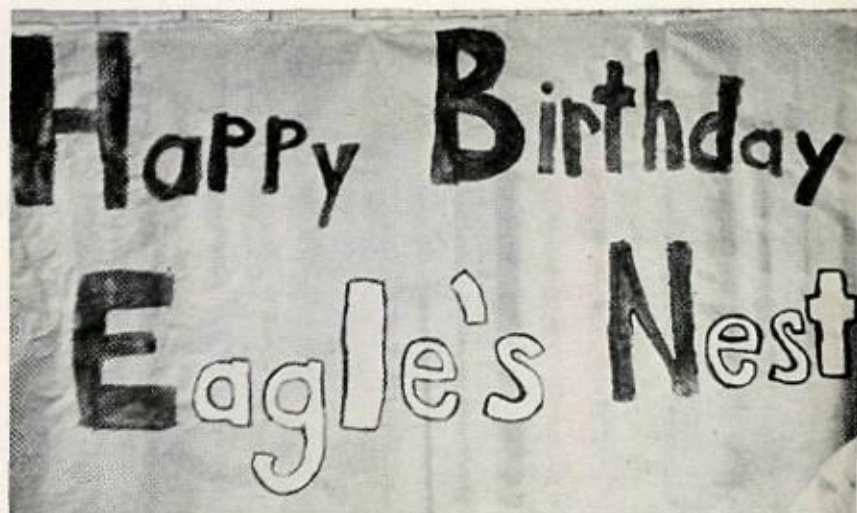 Happy Birthday
Eagle's Nest